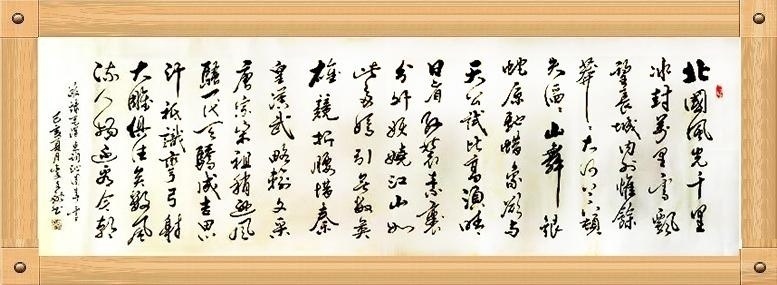 北國風光千里
冰封萬里雪飄
望長城內外惟餘
莽〻大河上下頓
失滔〻山舞銀
蛇原馳蠟象欲與
天公試比高須晴
日看紅裝素裹
分外妖嬈江山如
此多嬌引無數英
雄競折腰惜秦
皇漢武略輸文采
唐宗宋祖稍遜風
騷一代天驕成吉思
汗祇識彎弓射
大雕俱往矣數風
流人物還看今朝
錄毛澤東詞沁園春雪
己亥夏月